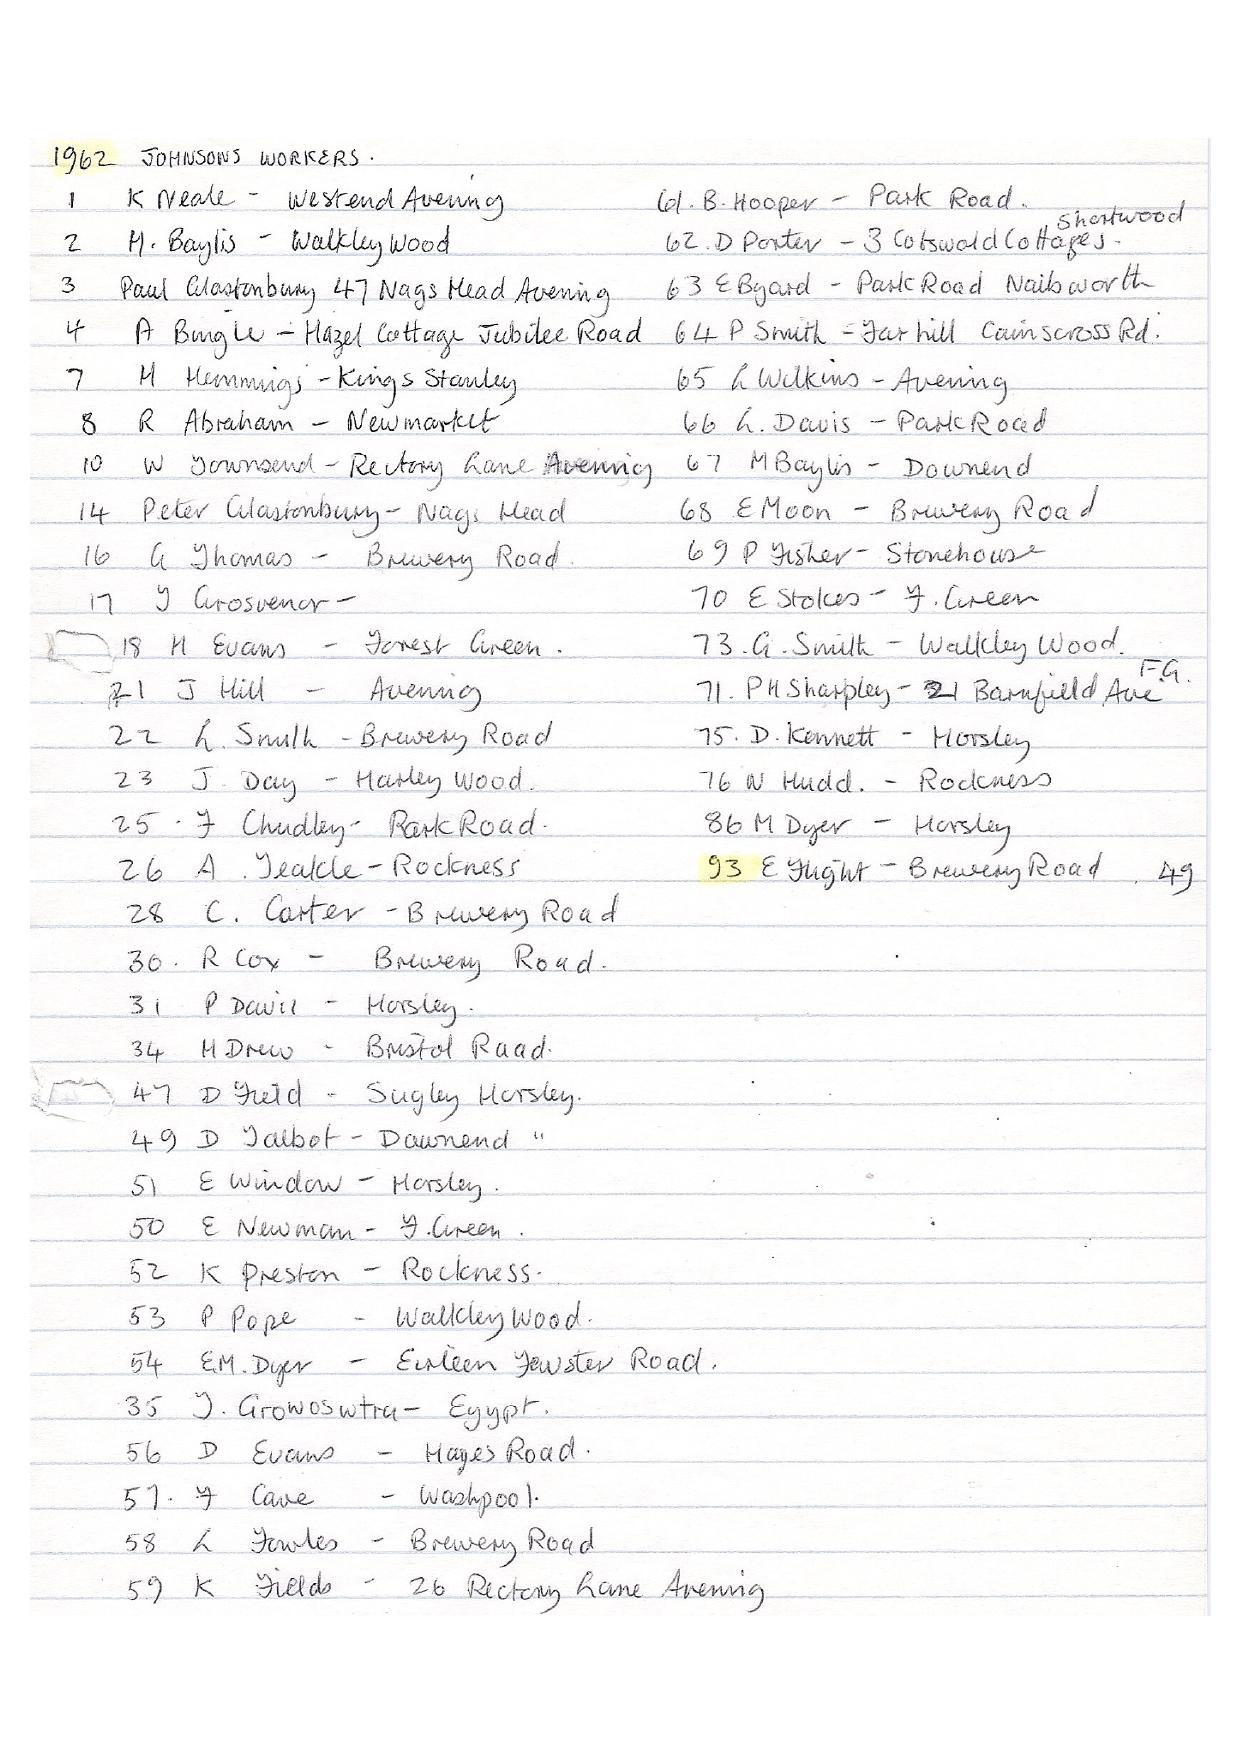 1962 JOHNSONS WORKERS.
1 K Neale - Westend Avening
2 M. Baylis - Walkley Wood
3 Paul Glastonbury 47 Nags Head Avening
4 A Bingle - Hazel Cottage Jubilee Road
7 H Hemmigs - Kings Stanley
8 R Abraham - Newmarket
10 W Townsend - Rectory Lane Avening
14 Peter Glastonbury - Nags Head
16 G Thomas - Brewery Road.
17 J Grosvenor -
18 H Evans - Forest Green.
21 J Hill - Avening
22 L. Smith - Brewery Road
23 J. Day - Harley Wood.
25. F Chudley - Park Road.
26 A. Teakle - Rockness
28 C. Carter - Brewery Road
30. R Cox - Brewery Road.
31 P Davis - Horsley.
34 H Drew - Bristol Road.
47 D Field - Sugley Horsley.
49 D Talbot - Downend "
51 E Window - Horsley.
50 E Newman - F. Green.
52 K Preston - Rockness.
53 P Pope - Walkley Wood.
54 E.M. Dyer - Road.
35 J. - Egypt.
56 D Evans - Hayes Road.
57. F Cave - Washpool.
58 L Fowles - Brewery Road
59 K Fields - 26 Rectory Lane Avening
61. B. Hooper - Park Road.
Shortwood
62. D Porter - 3 Cotswold Cottages.
63 E Byard - Park Road Nailsworth
64 P Smith - Farhill Cainscross Rd.
65 L Wilkins - Avening
66 L. Davis - Park Road
67 M Baylis - Downend
68 E Moon - Brewery Road
69 P Fisher - Stonehouse
70 E Stokes - F. Green
73. G. Smith - Walkley Wood.
F.G.
71. P H Sharpley - 21 Barnfield Ave
75. D. Kennett - Horsley
76 N Hudd. - Rockness
86 M Dyer - Horsley
93 E Flight - Brewery Road. 49